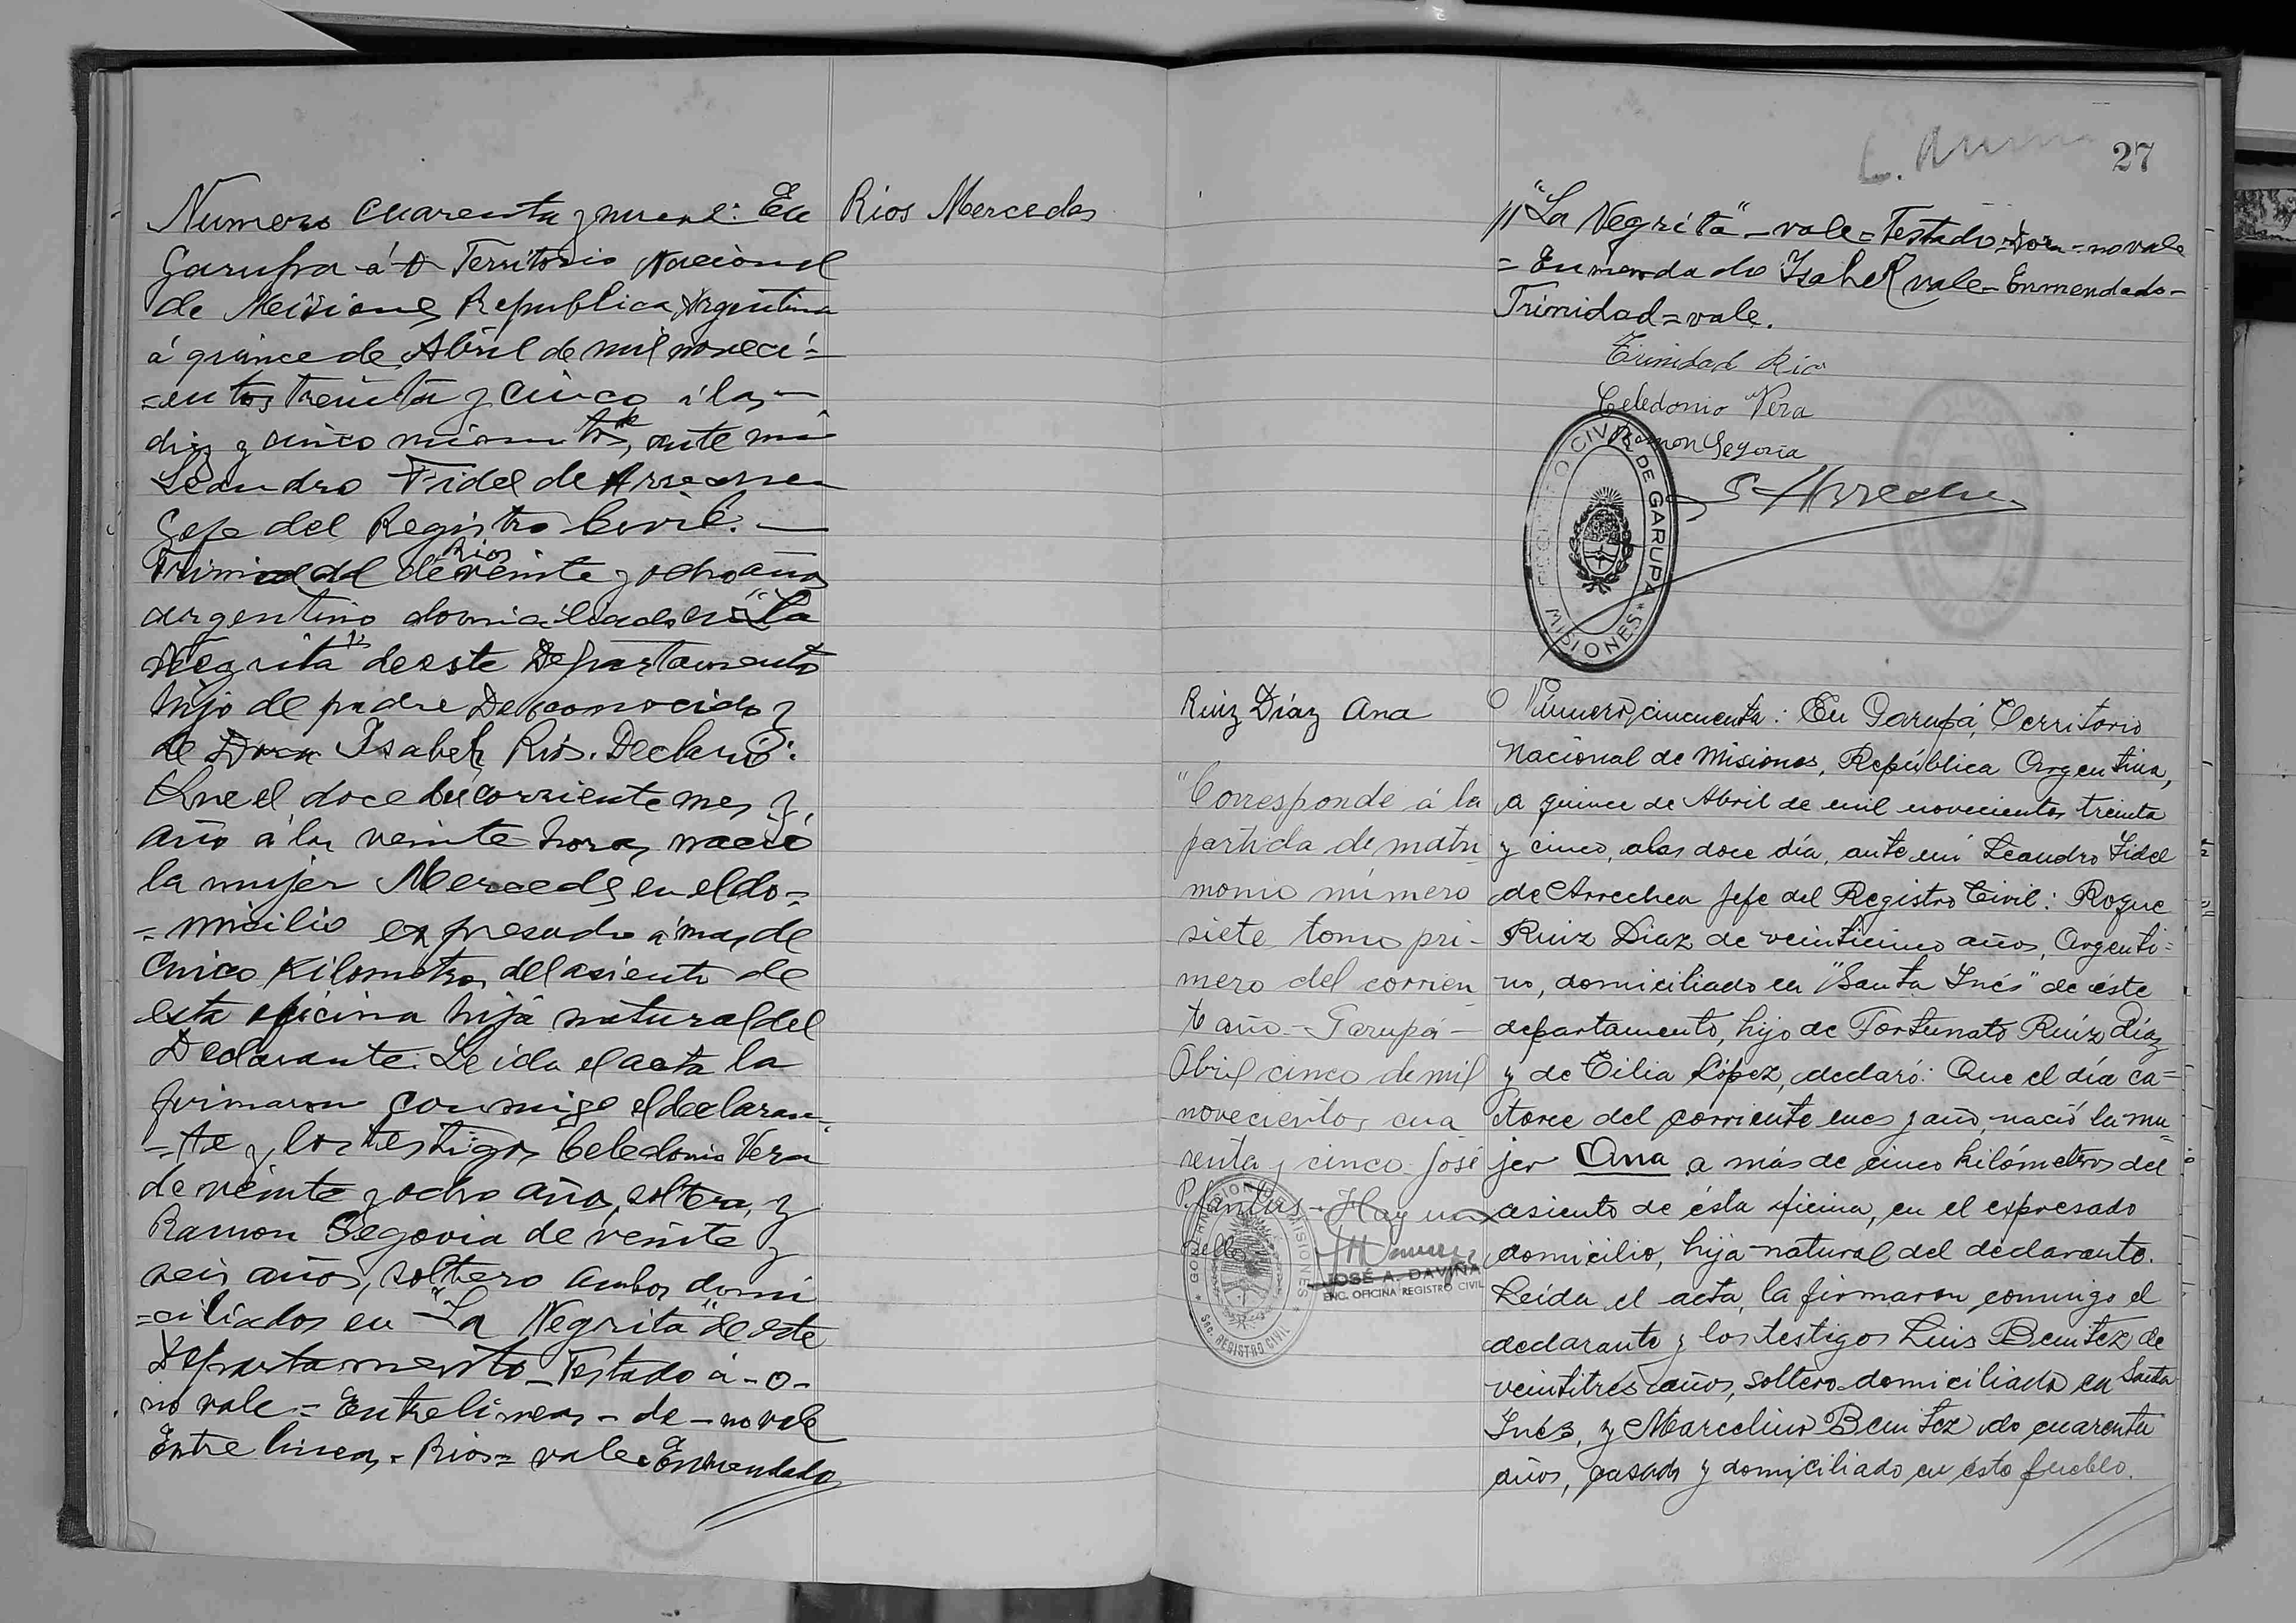 Numero cuarenta y nueve: En
Garupa á O Territorio Nacional
de Misiones Republica Argentina
á quince de Abril de mil noveci=
=entos treinta y cinco á las —
diez y cinco minutos, ante mi
Leandro Fidel de Arrechea
Gefe del Registro Civil. —
Rios
Trinidad de veinte y ocho años
argentino domiciliado en "La
Negrita" de este Departamento
hijo de padre Desconocido y
de Dora Isabel Rios. Declaró:
Que el doce del corriente mes y
año á las veinte horas, nació
la mujer Mercedes en el do=
=micilio expresado á mas de
Cinco Kilometros del asiento de
esta oficina hija natural del
Declarante. Leida el acta la
firmaron conmigo el declaran=
=te y los testigos Celedonio Vera
de veinte y ocho años, soltero, y
Ramon Segovia de veinte y
seis años, soltero ambos domi
=ciliados en "La Negrita" de este
Departamento_Testado á-o-
no vale = Entrelineas - de - no vale
Entre lineas - Rios = vale = Enmendado
Rios Mercedes
27
// "La Negrita" - vale = Testado = Dora = no vale
= Enmendado Isabel vale - Enmendado -
Trinidad = vale.
Trinidad Rio
Celedonio Vera
Ramon Segovia
REGISTRO CIVIL DE GARUPA
* MISIONES *
Ruiz Díaz Ana
"Corresponde á la
partida de matri
monio número
siete tomo pri-
mero del corrien
te año - Garupá -
Abril cinco de mil
novecientos cua
renta y cinco José
Hay un
sello
GOBERNACION DE MISIONES
* Sec. REGISTRO CIVIL *
JOSÉ A. DAVIÑA
ENC. OFICINA REGISTRO CIVIL
Número cincuenta: En Garupá, Territorio
Nacional de Misiones, República Argentina,
a quince de Abril de mil novecientos treinta
y cinco, a las doce día, ante mí Leandro Fidel
de Arrechea Jefe del Registro Civil: Roque
Ruiz Díaz de veinticinco años, Argenti=
no, domiciliado en "Santa Inés" de éste
departamento, hijo de Fortunato Ruíz Díaz
y de Cilia López, declaró: Que el día ca=
torce del corriente mes y año, nació la mu=
jer Ana a más de cinco kilómetros del
asiento de ésta oficina, en el expresado
domicilio, hija natural del declarante.
Leída el acta, la firmaron conmigo el
declarante y los testigos Luis Benitez de
veintitres años, soltero domiciliado en Santa
Inés, y Marcelino Benitez de cuarenta
años, casado y domiciliado en éste pueblo.